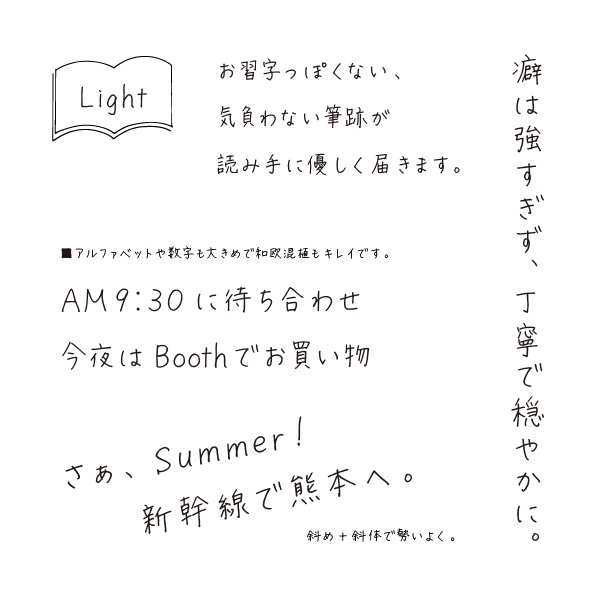 Light
お習字っぽくない、
気負わない筆跡が
読み手に優しく届きます。
癖は強すぎず、丁寧で穏やかに。
■アルファベットや数字も大きめで和欧混植もキレイです。
AM9:30に待ち合わせ
今夜はBoothでお買い物
さぁ、Summer!
新幹線で熊本へ。
斜め+斜体で勢いよく。